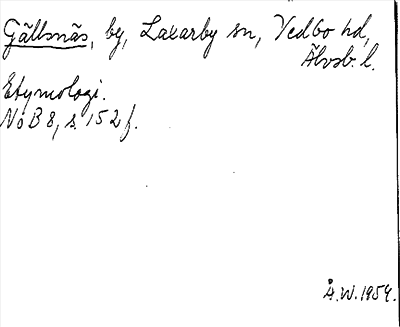 Gällsnäs, by, Laxarby sn, Vedbo hd,
Älvsb. l.
Etymologi.
NoB 8, s. 152 f.
Å.W. 1959.